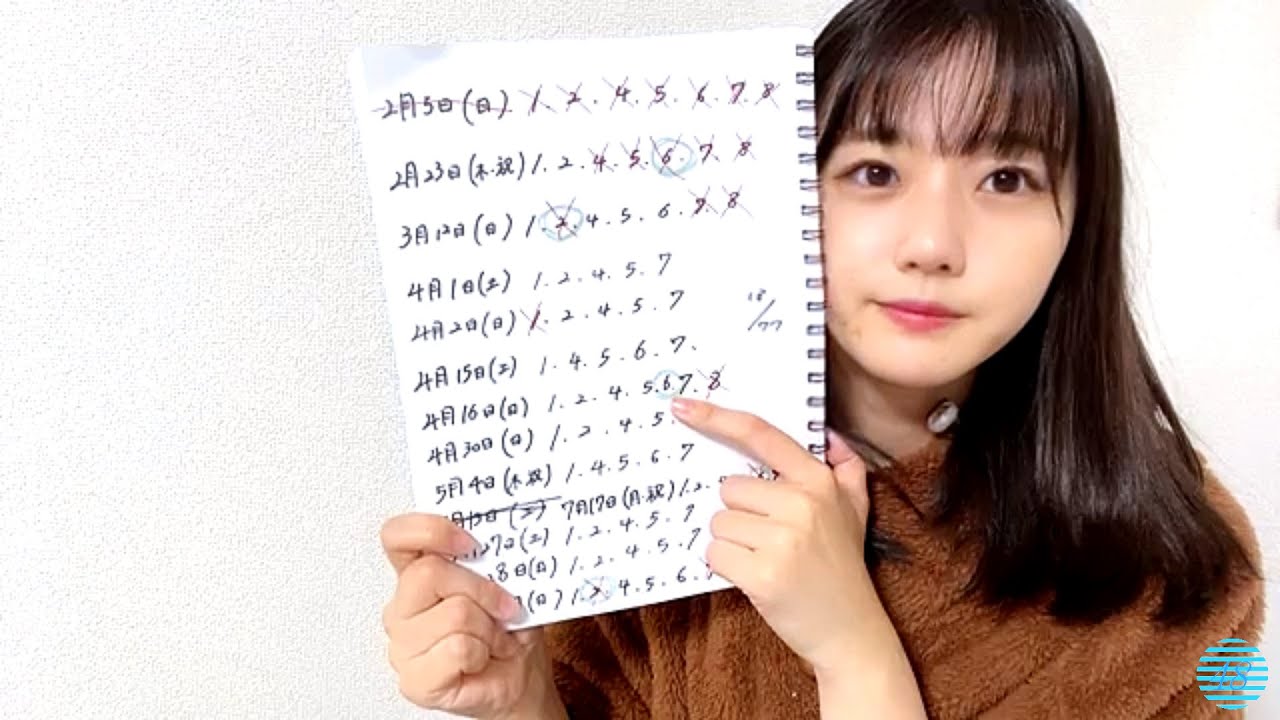 2月5日(日) 1. 2. 4. 5. 6. 7. 8
2月23日(木・祝) 1. 2. 4. 5. 6. 7. 8
3月12日(日) 1. 2. 4. 5. 6. 7. 8
4月1日(土) 1. 2. 4. 5. 7
4月2日(日) 1. 2. 4. 5. 7
18/77
4月15日(土) 1. 4. 5. 6. 7.
4月16日(日) 1. 2. 4. 5. 6. 7. 8
4月30日(日) 1. 2. 4. 5.
5月4日(木・祝) 1. 4. 5. 6. 7
月13日(土) 7月17日(月・祝) 1. 2.
27日(土) 1. 2. 4. 5. 7
28日(日) 1. 2. 4. 5. 7
(日) 1. 2. 4. 5. 6.
48